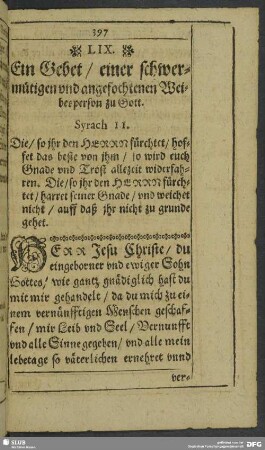 397
LIX.
Ein Gebet / einer schwer-
mütigen vnd angefochtenen Wei-
bes person zu Gott.
Syrach 11.
Die / so jhr den HERRN fürchtet / hof-
fet das beste von jhm / so wird euch
Gnade vnd Trost allezeit widerfah-
ren. Die / so jhr den HERRN fürch-
tet / harret seiner Gnade / vnd weichet
nicht / auff daß jhr nicht zu grunde
gehet.
HERR Jesu Christe / du
eingeborner vnd ewiger Sohn
Gottes / wie gantz gnädiglich hast du
mit mir gehandelt / da du mich zu ei-
nem vernünfftigen Menschen geschaf-
fen / mir Leib vnd Seel / Vernunfft
vnd alle Sinne gegeben / vnd alle mein
lebetage so väterlichen ernehret vnnd
ver-
SLUB
DFG